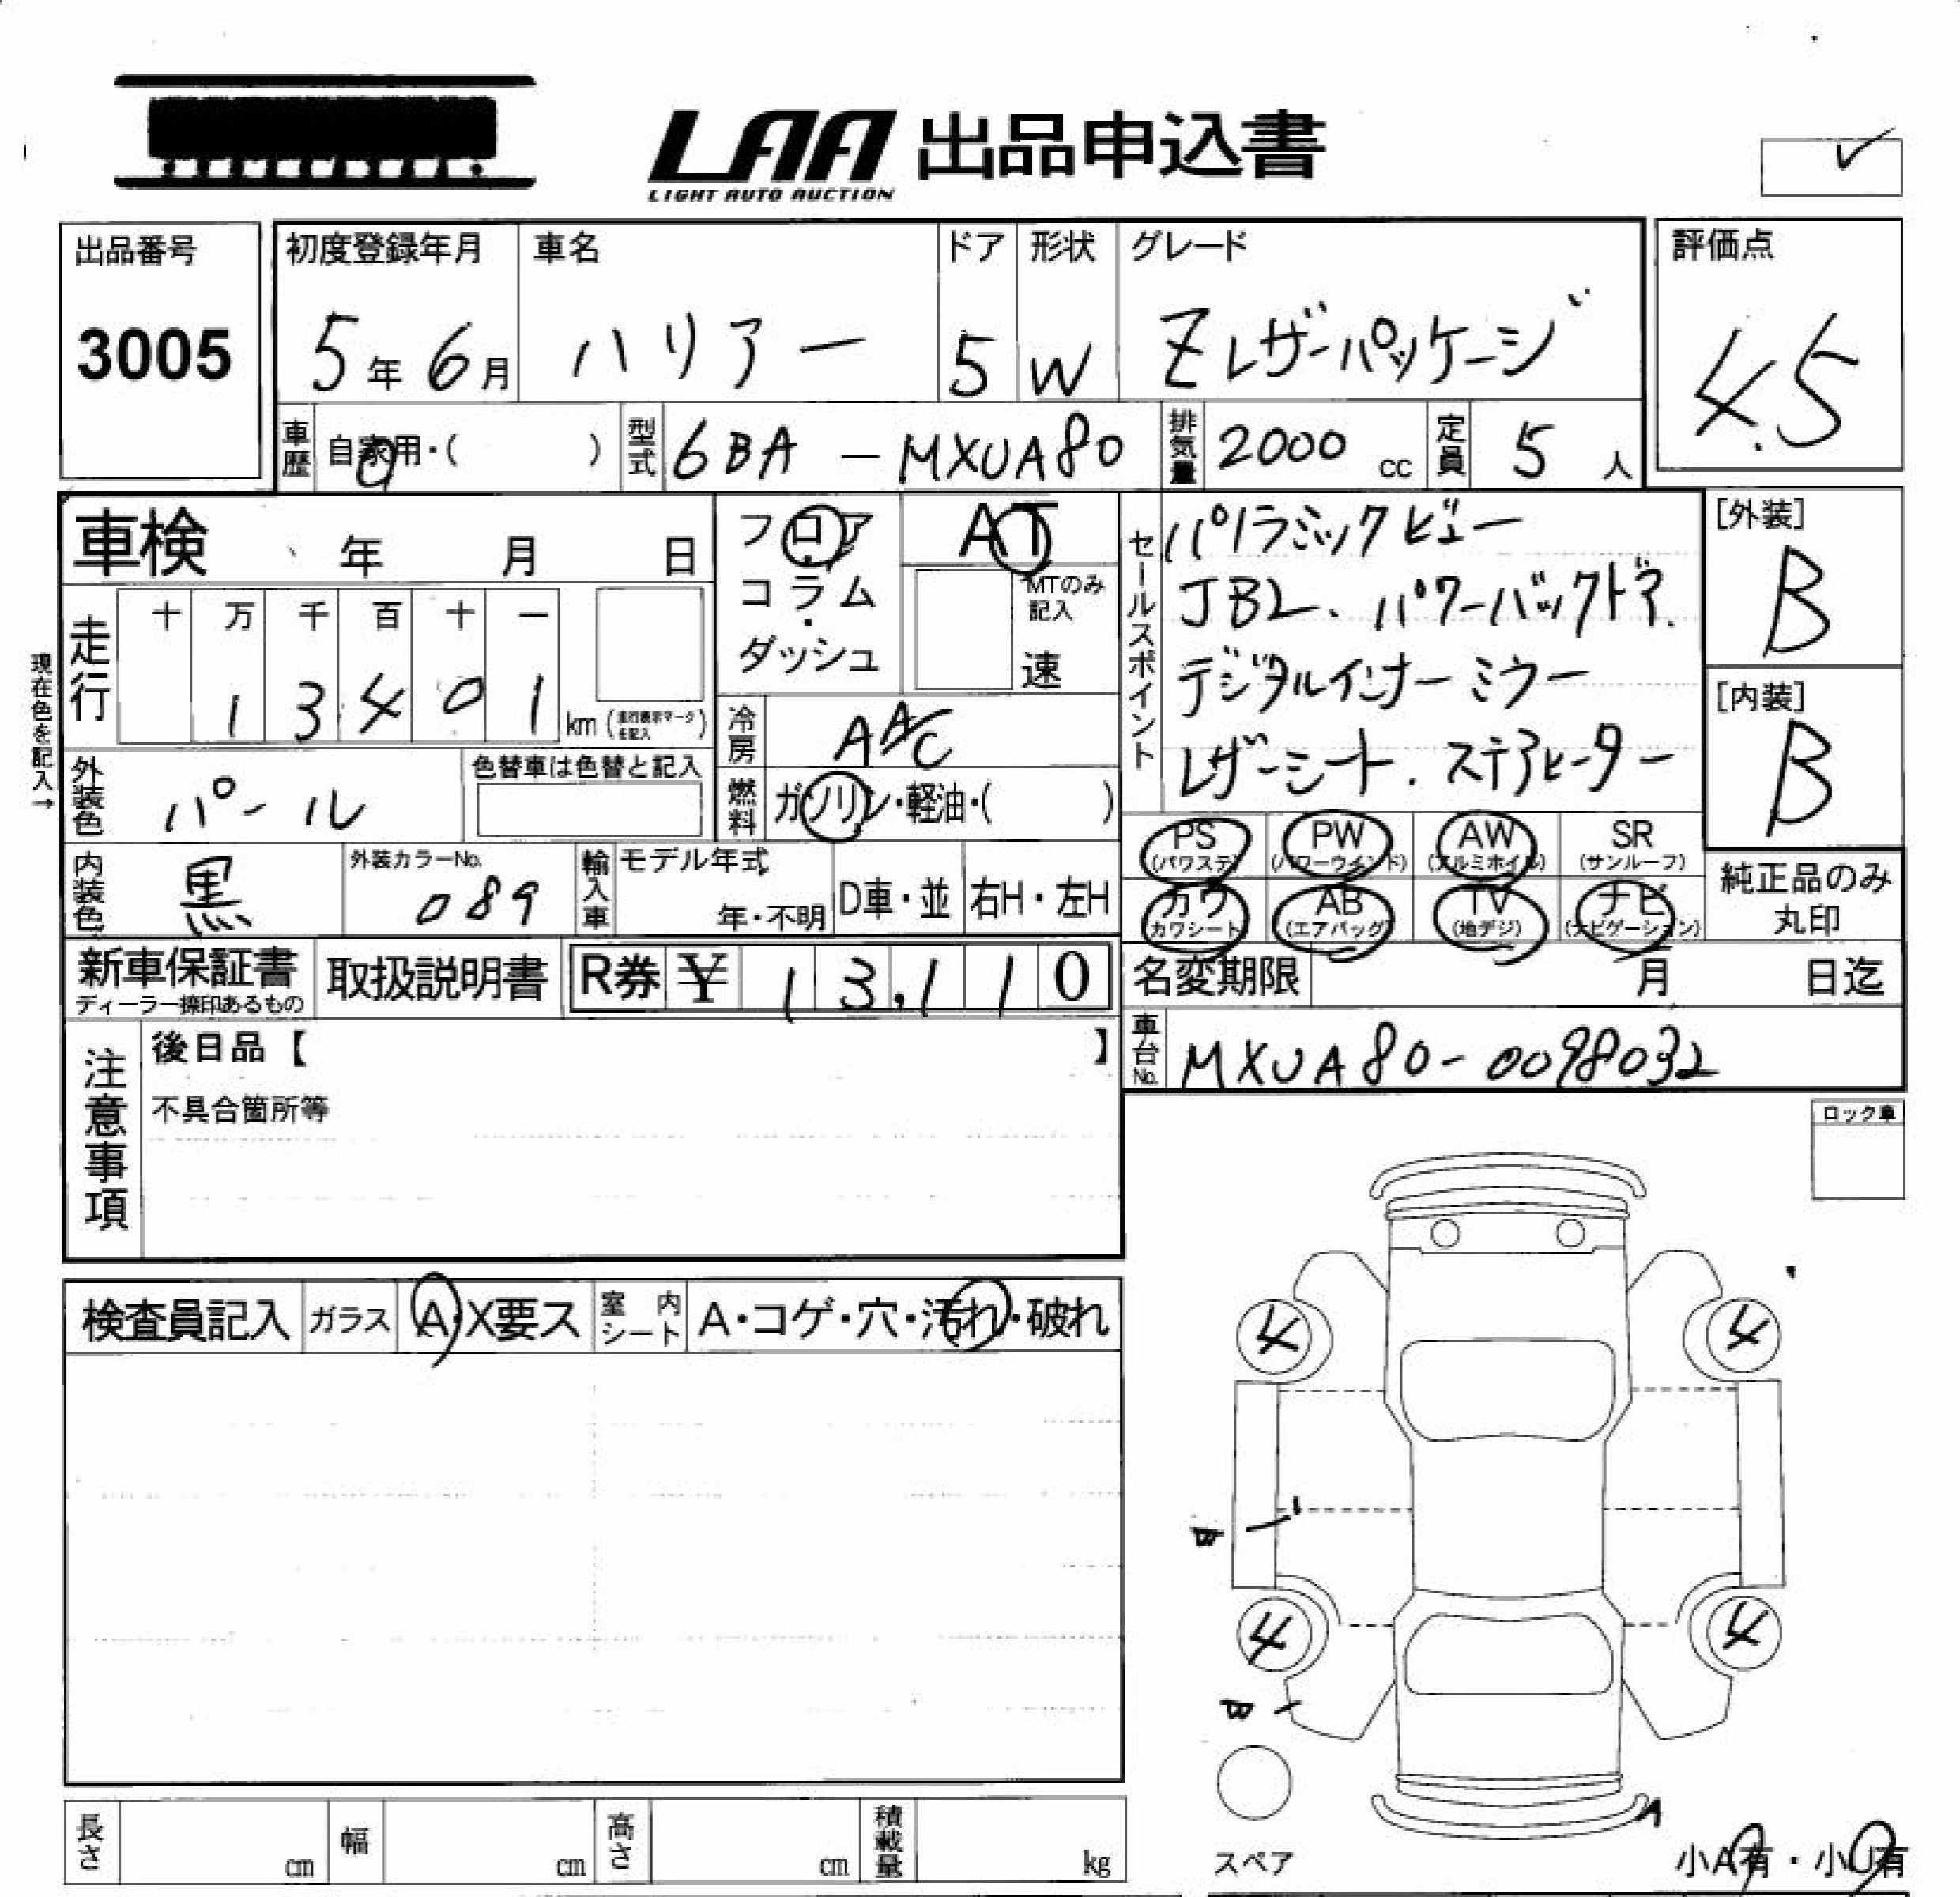 LAA 出品申込書
LIGHT AUTO AUCTION
出品番号 初度登録年月 車名 ドア 形状 グレード 評価点
3005 5年6月 ハリアー 5 W Zレザーパッケージ 4.5
車歴 自家用・( ) 型式 6BA - MXUA80 排気量 2000 cc 定員 5 人
車検 年 月 日
フロア・コラム・ダッシュ
AT
MTのみ記入
速
セールスポイント
パノラミックビュー
JBL、パワーバックドア.
デジタルインナーミラー
レザーシート.ステアヒーター
[外装]
B
[内装]
B
現在色を記入→
走行 十 万 千 百 十 一
1 3 4 0 1 km (走行表示マークを記入)
冷房 AAC
外装色 パール 色替車は色替と記入
燃料 ガソリン・軽油・( )
PS (パワステ) PW (パワーウインド) AW (アルミホイル) SR (サンルーフ)
カワ (カワシート) AB (エアバッグ) TV (地デジ) ナビ (ナビゲーション)
純正品のみ
丸印
内装色 黒 外装カラーNo. 089 輸入車 モデル年式 年・不明 D車・並 右H・左H
新車保証書 取扱説明書 R券 ¥ 13,110
ディーラー捺印あるもの
名変期限 月 日迄
車台No. MXUA80-0098032
注意事項
後日品【 】
不具合箇所等
ロック車
検査員記入 ガラス A・X要ス 室内シート A・コゲ・穴・汚れ・破れ
4 4
4 4
スペア
小A有・小U有
長さ cm 幅 cm 高さ cm 積載量 kg